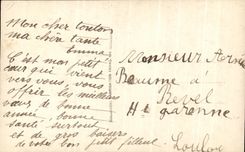 Mon cher tonton
ma chère tante
Emma
C'est mon petit
cœur qui vient
vers vous, vous
offrir les meilleurs
vœux de bonne
année, bonne
santé surtout
et de gros baisers
de votre bon petit filleul.
Loulou
Monsieur
Beaume à
Revel
Hte garonne